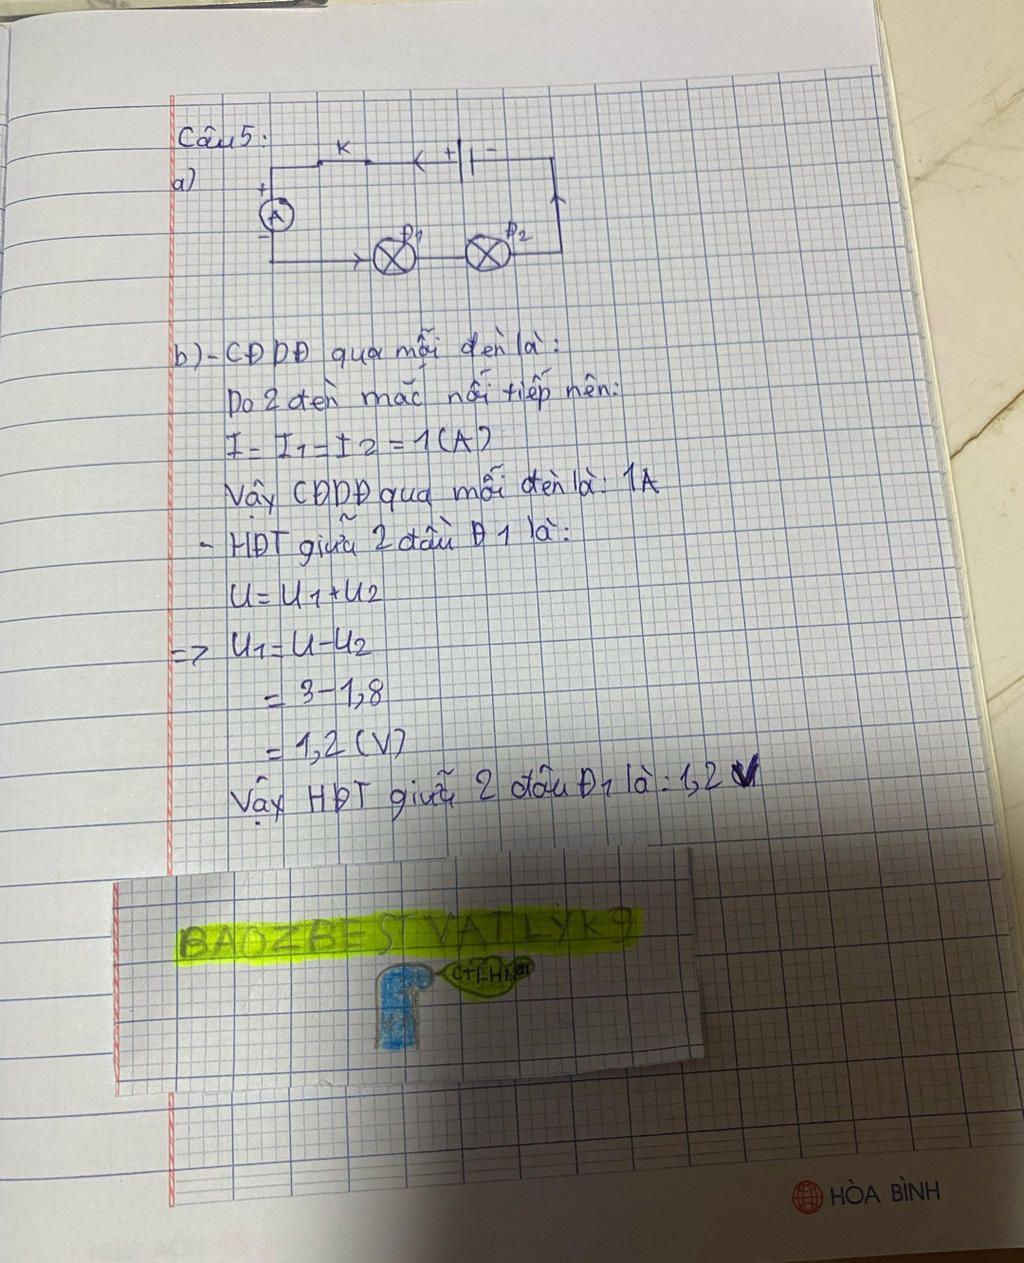 Câu 5:
a)
K
+ -
+
A
-
Đ1
Đ2
b) - CĐDĐ qua mỗi đèn là:
Do 2 đèn mắc nối tiếp nên:
I = I1 = I2 = 1 (A)
Vậy CĐDĐ qua mỗi đèn là: 1A
- HĐT giữa 2 đầu Đ1 là:
U = U1 + U2
=> U1 = U - U2
= 3 - 1,8
= 1,2 (V)
Vậy HĐT giữa 2 đầu Đ1 là: 1,2 V
BAOZBESTVATLÝK9
HÒA BÌNH